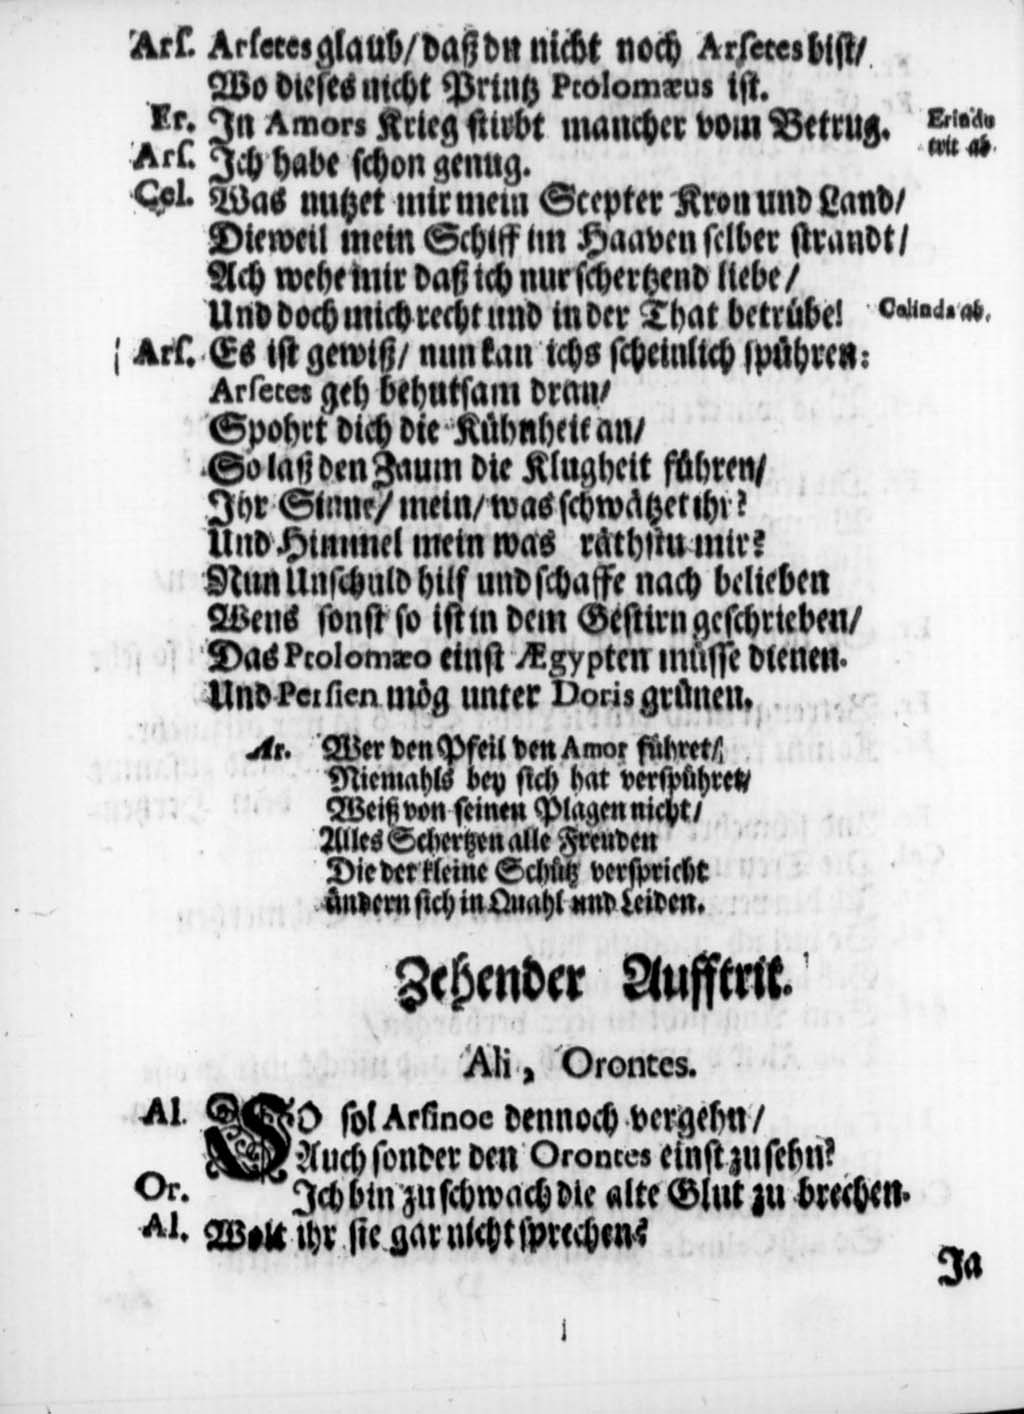 Arſ. Arſetes glaub/ daß du nicht noch Arſetes biſt/
Wo dieſes nicht Printz Ptolomæus iſt.
Er. In Amors Krieg ſtirbt mancher vom Betrug. Erinda
trit ab.
Arſ. Ich habe ſchon genug.
Cel. Was nutzet mir mein Scepter Kron und Land/
Dieweil mein Schiff im Haaven ſelber ſtrandt/
Ach wehe mir daß ich nur ſchertzend liebe/
Und doch mich recht und in der That betrübe! Celinda ab.
Arſ. Es iſt gewiß/ nun kan ichs ſcheinlich ſpühren:
Arſetes geh behutſam dran/
Spohrt dich die Kühnheit an/
So laß den Zaum die Klugheit führen/
Ihr Sinne/ mein/ was ſchwätzet ihr?
Und Himmel mein was räthſtu mir?
Nun Unſchuld hilf und ſchaffe nach belieben
Wens ſonſt ſo iſt in dem Geſtirn geſchrieben/
Das Ptolomæo einſt Ægypten müſſe dienen.
Und Perſien mög unter Doris grünen.
Ar. Wer den Pfeil den Amor führet/
Niemahls bey ſich hat verſpühret/
Weiß von ſeinen Plagen nicht/
Alles Schertzen alle Freuden
Die der kleine Schütz verſpricht
ändern ſich in Quahl und Leiden.
Zehender Aufftrit.
Ali, Orontes.
Al. SO ſol Arſinoe dennoch vergehn/
Auch ſonder den Orontes einſt zu ſehn?
Or. Ich bin zu ſchwach die alte Glut zu brechen.
Al. Wolt ihr ſie gar nicht ſprechen?
Ja